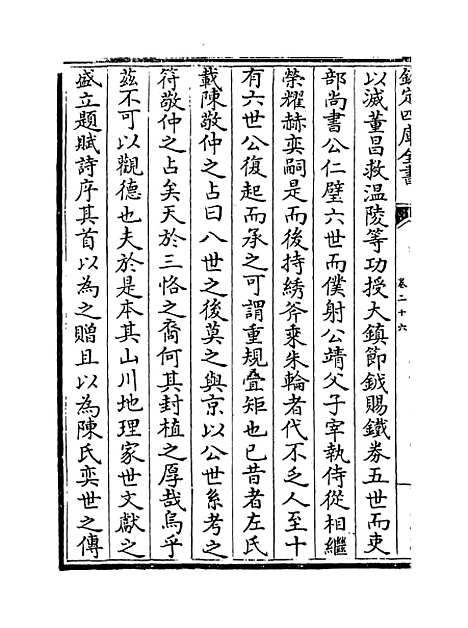 欽定四庫全書
卷二十六
以滅董昌救温陵等功授大鎮節鉞賜鐵券五世而吏
部尚書公仁璧六世而僕射公靖父子宰執侍從相繼
榮耀赫奕嗣是而後持綉斧乗朱輪者代不乏人至十
有六世公復起而承之可謂重規叠矩也已昔者左氏
載陳敬仲之占曰八世之後莫之與京以公世系考之
符敬仲之占矣天於三恪之裔何其封植之厚哉烏乎
茲不可以觀德也夫於是本其山川地理家世文獻之
盛立題賦詩序其首以為之贈且以為陳氏奕世之傳